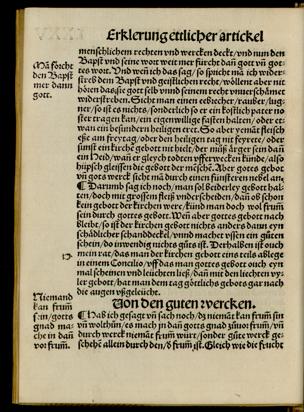 Erklerung ettlicher artickel
menschlichem rechten vnd wercken deckt/vnd nun den
Bapst vnd seine wort weit mer fürcht dañ gott vñ got=
tes wort. Vnd weñ ich das sag/so spricht mã ich wider
streb dem Bapst vnd geistlichen recht/wöllent aber nit
hören das sie gott selb vnnd seinem recht vnuerschämet
widerstreben. Sicht man einen eebrecher/rauber/lug=
ner/so ist es nichts/sonder lich so er ein köstlich pater no
ster tragen kan/ein eigenwillige fasten haltē/oder et=
wan ein besundern heiligen eret. So aber yemãt fleisch
esse am freytag/oder den heiligen tag nit feyrete/oder
sunst ein kirchē gebot nit hielt/der müß ärger sein dañ
ein Heid/wañ er gleych todten vfferwecken künde/also
hüpsch gleissen die gebot der mēschē. Aber gottes gebot
vñ gots werck sicht mã durch einen finstern nebel an.
Darumb sag ich noch/man sol beiderley gebot hal=
ten/doch mit grossem fleiß vnderscheiden/dañ ob schon
kein gebot der kirchen wer/künd man doch wol frum̃
sein durch gottes gebot. Weñ aber gottes gebot nach
bleibt/so ist der kirchen gebot nichts anders dann eyn
schädlicher schanddeckel/vnd macht vssen ein gůten
schein/do inwendig nichts gůts ist. Derhalbē ist ouch
mein rat/das man der kirchen gebott eins teils ablege
in einem Concilio/vff das man gottes gebot ouch eyn
mal scheinen vnd leüchten ließ/dañ mit den liechten vy=
ler gebot/hat man dem tag götlichs gebots gar nach
die augen vßgeleücht.
Von den guten wercken.
Hab ich gesagt vñ sach noch/dz niemãt kan frum̃ sin
vñ wolthün/es mach jn dañ gotts gnad zůuor frum̃/vñ
durch werck niemãt frum̃ würt/sonder gůte werck ge=
schehē allein durch den/ď frum̃ ist. Gleich wie die frücht
Mã förcht
den Bapst
mer dann
gott.
Niemand
kan frum̃
sin/gotts
gnad ma=
che in dañ
vor frum̃.